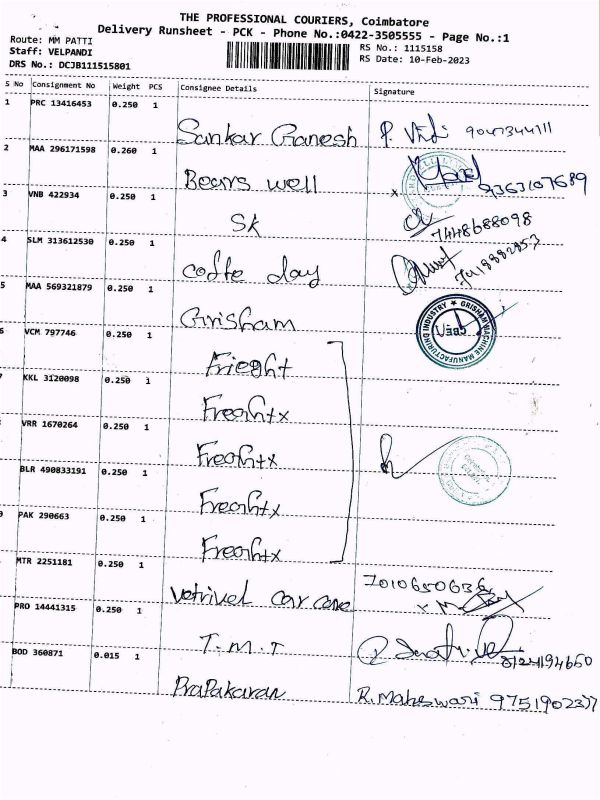 THE PROFESSIONAL COURIERS, Coimbatore
Delivery Runsheet - PCK - Phone No.:0422-3505555 - Page No.:1
Route: MM PATTI
Staff: VELPANDI
DRS No.: DCJB111515801
RS No.: 1115158
RS Date: 10-Feb-2023
S No Consignment No Weight PCS Consignee Details Signature
1 PRC 13416453 0.250 1
Sankar Ganesh 9047344711
2 MAA 296171598 0.260 1
Bears well x 9363107689
3 VNB 422934 0.250 1
Sk 7448688098
4 SLM 313612530 0.250 1
coffe day
5 MAA 569321879 0.250 1
Grisham GRISHAN MACHINE MANUFACTURING INDUSTRY
6 VCM 797746 0.250 1
Frieght
7 KKL 3120098 0.250 1
Freahtx
VRR 1670264 0.250 1
Freahtx
BLR 490833191 0.250 1
Freahtx
PAK 290663 0.250 1
Freahtx
MTR 2251181 0.250 1
Vetrivel car care 7010650636
PRO 14441315 0.250 1
T.M.T 8124194660
BOD 360871 0.015 1
PraPakaran R. Maheswari 9751902377